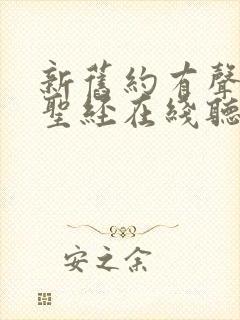 新舊約有聲
聖经在线聽
安之余